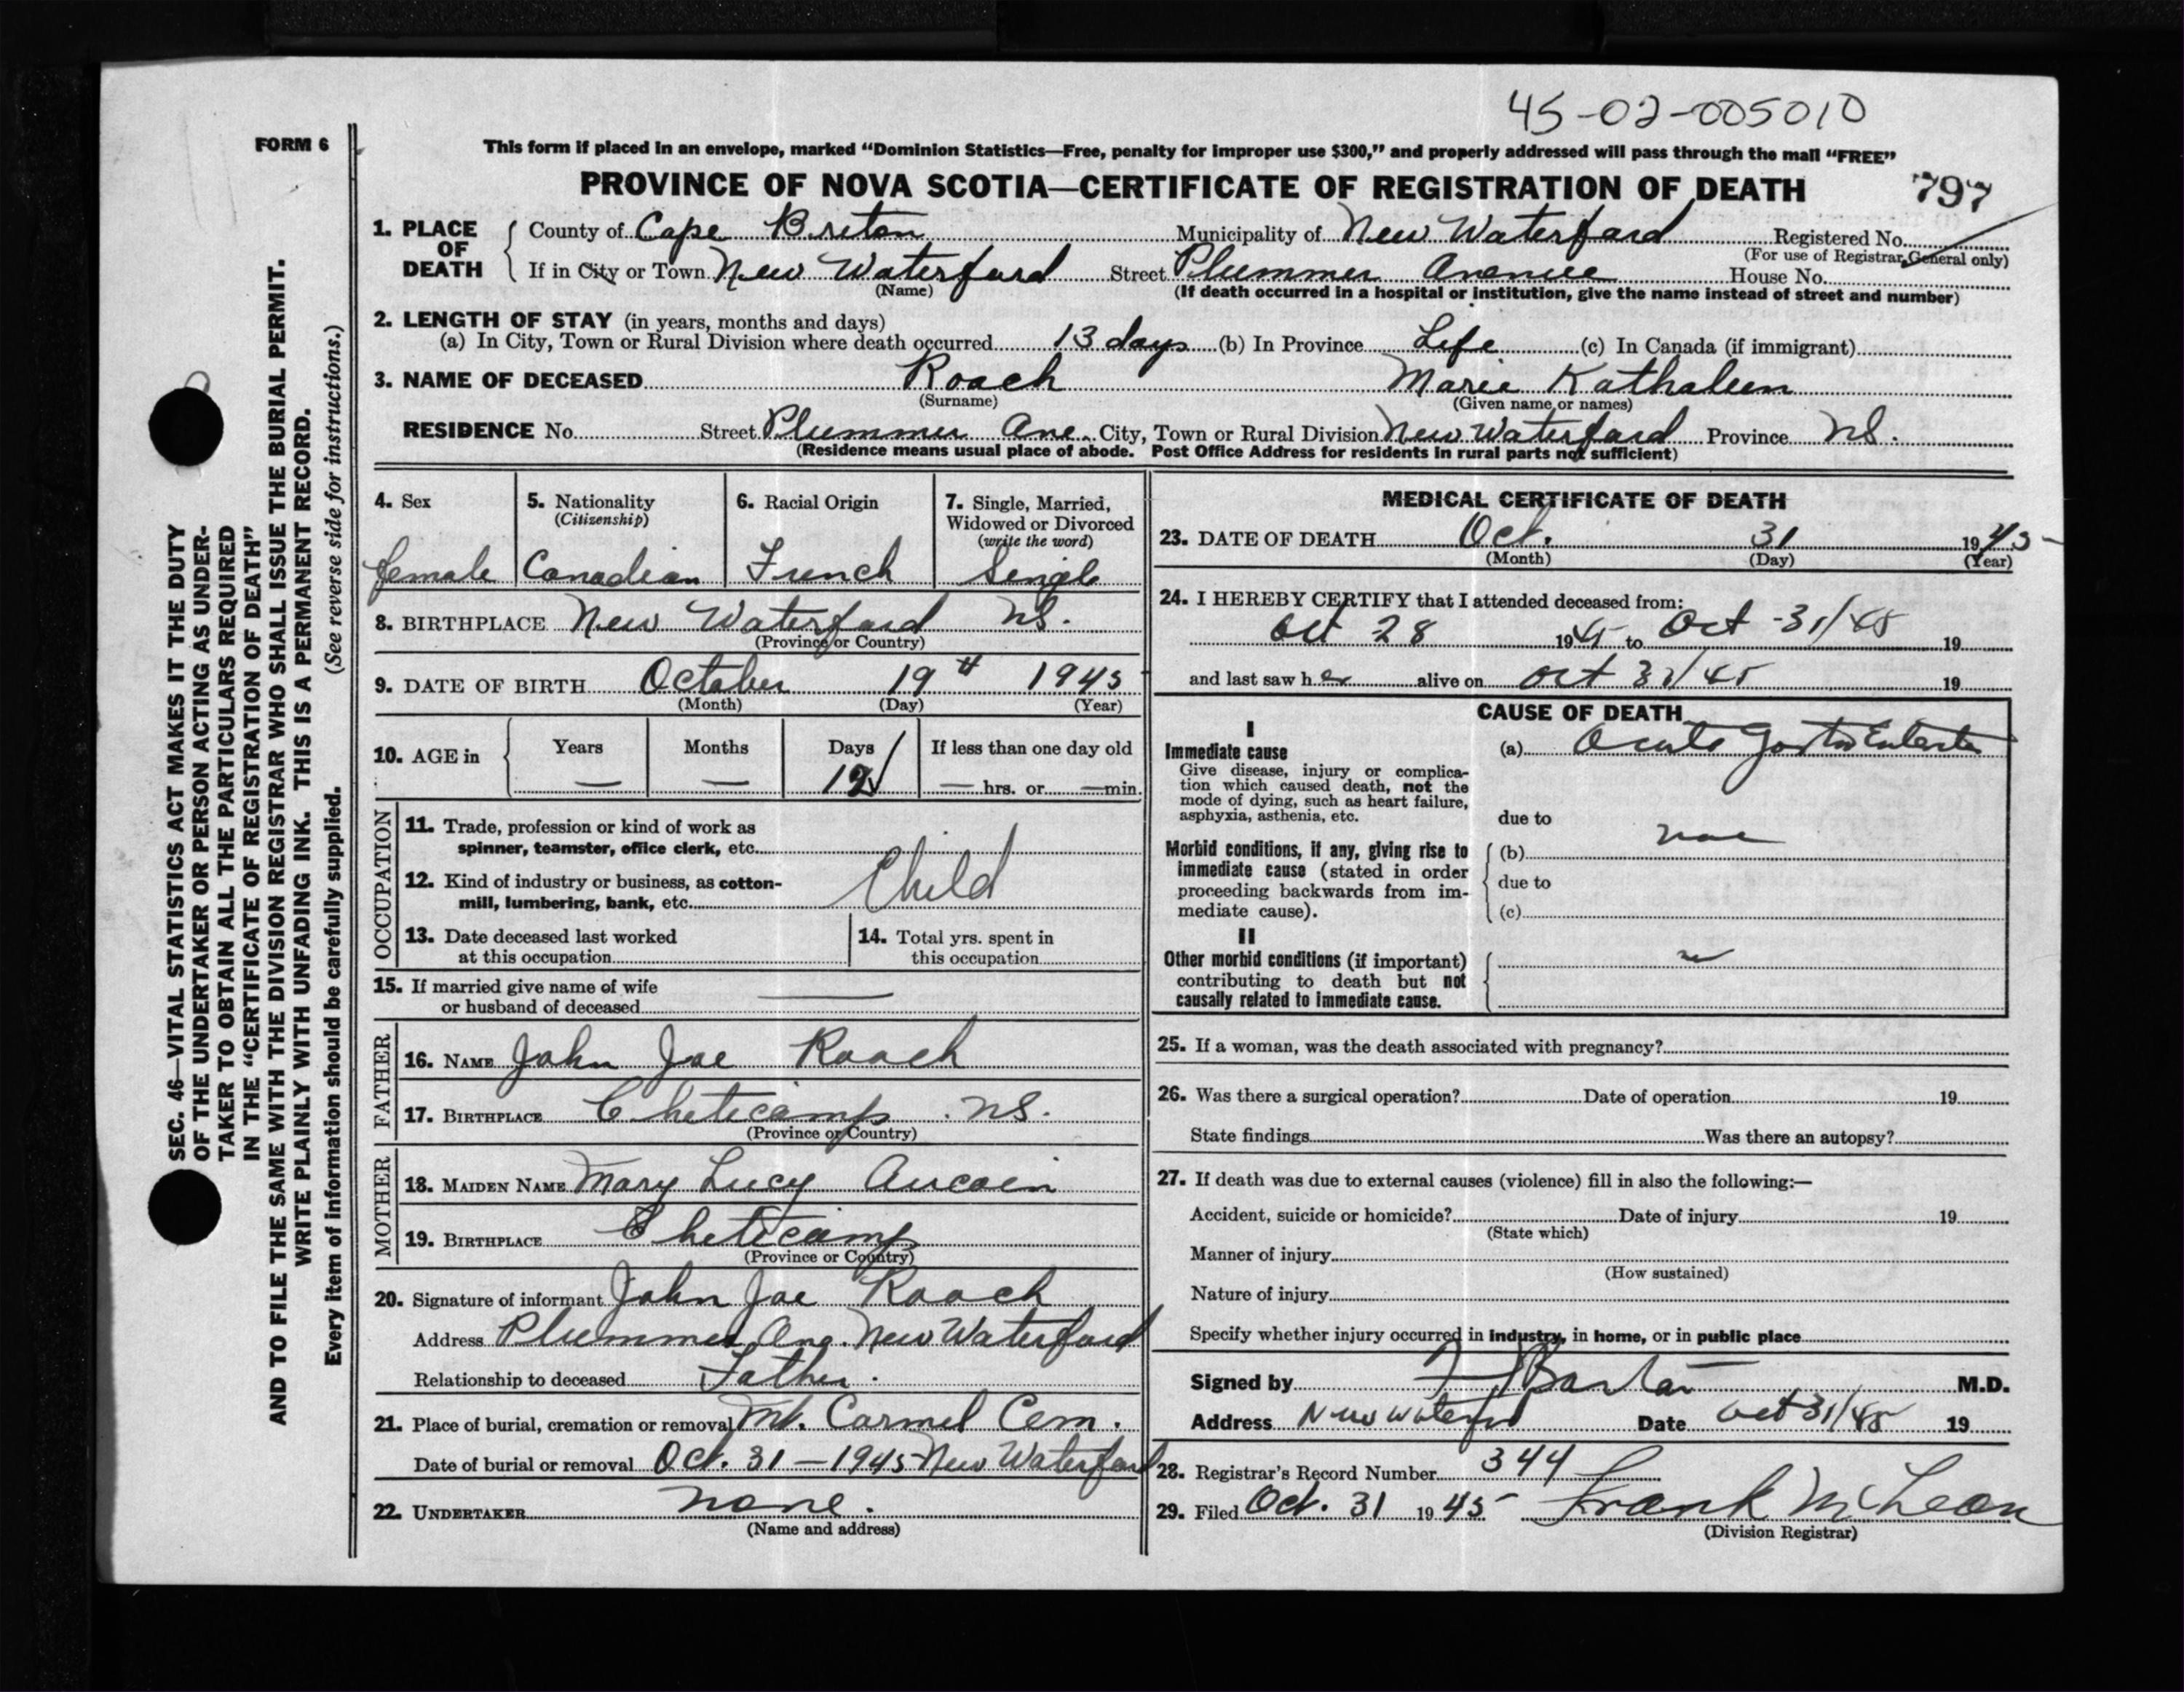 45-02-005010
FORM 6
This form if placed in an envelope, marked "Dominion Statistics—Free, penalty for improper use $300," and properly addressed will pass through the mail "FREE"
PROVINCE OF NOVA SCOTIA—CERTIFICATE OF REGISTRATION OF DEATH 797
1. PLACE OF DEATH
County of Cape Breton Municipality of New Waterford Registered No.
(For use of Registrar General only)
If in City or Town New Waterford Street Plummer Avenue House No.
(Name) (If death occurred in a hospital or institution, give the name instead of street and number)
2. LENGTH OF STAY (in years, months and days)
(a) In City, Town or Rural Division where death occurred 13 days (b) In Province Life (c) In Canada (if immigrant)
3. NAME OF DECEASED Roach Marie Kathaleen
(Surname) (Given name or names)
RESIDENCE No. Street Plummer Ave. City, Town or Rural Division New Waterford Province NS.
(Residence means usual place of abode. Post Office Address for residents in rural parts not sufficient)
4. Sex
female
5. Nationality
(Citizenship)
Canadian
6. Racial Origin
French
7. Single, Married,
Widowed or Divorced
(write the word)
Single
8. BIRTHPLACE New Waterford NS.
(Province or Country)
9. DATE OF BIRTH October 19th 1945
(Month) (Day) (Year)
10. AGE in
Years Months Days If less than one day old
— — 12 — hrs. or — min.
OCCUPATION
11. Trade, profession or kind of work as
spinner, teamster, office clerk, etc.
Child
12. Kind of industry or business, as cotton-
mill, lumbering, bank, etc.
13. Date deceased last worked
at this occupation
14. Total yrs. spent in
this occupation
15. If married give name of wife
or husband of deceased
FATHER
16. NAME John Joe Roach
17. BIRTHPLACE Cheticamp. NS.
(Province or Country)
MOTHER
18. MAIDEN NAME Mary Lucy Aucoin
19. BIRTHPLACE Cheticamp
(Province or Country)
20. Signature of informant John Joe Roach
Address Plummer Ave. New Waterford
Relationship to deceased Father.
21. Place of burial, cremation or removal Mt. Carmel Cem.
Date of burial or removal Oct. 31 — 1945 New Waterford
22. UNDERTAKER none.
(Name and address)
MEDICAL CERTIFICATE OF DEATH
23. DATE OF DEATH Oct. 31 1945
(Month) (Day) (Year)
24. I HEREBY CERTIFY that I attended deceased from:
Oct 28 1945 to Oct-31/45 19
and last saw her alive on Oct 31/45 19
CAUSE OF DEATH
I
Immediate cause
Give disease, injury or complica-
tion which caused death, not the
mode of dying, such as heart failure,
asphyxia, asthenia, etc.
(a) Acute Gastro
due to
Morbid conditions, if any, giving rise to
immediate cause (stated in order
proceeding backwards from im-
mediate cause).
(b)
due to
(c)
II
Other morbid conditions (if important)
contributing to death but not
causally related to immediate cause.
25. If a woman, was the death associated with pregnancy?
26. Was there a surgical operation? Date of operation 19
State findings Was there an autopsy?
27. If death was due to external causes (violence) fill in also the following:—
Accident, suicide or homicide? Date of injury 19
(State which)
Manner of injury
(How sustained)
Nature of injury
Specify whether injury occurred in industry, in home, or in public place
Signed by M.D.
Address New Waterford Date Oct 31/45 19
28. Registrar's Record Number 344
29. Filed Oct. 31 1945 Frank McLean
(Division Registrar)
SEC. 46—VITAL STATISTICS ACT MAKES IT THE DUTY
OF THE UNDERTAKER OR PERSON ACTING AS UNDER-
TAKER TO OBTAIN ALL THE PARTICULARS REQUIRED
IN THE "CERTIFICATE OF REGISTRATION OF DEATH"
AND TO FILE THE SAME WITH THE DIVISION REGISTRAR WHO SHALL ISSUE THE BURIAL PERMIT.
WRITE PLAINLY WITH UNFADING INK. THIS IS A PERMANENT RECORD.
Every item of information should be carefully supplied. (See reverse side for instructions.)